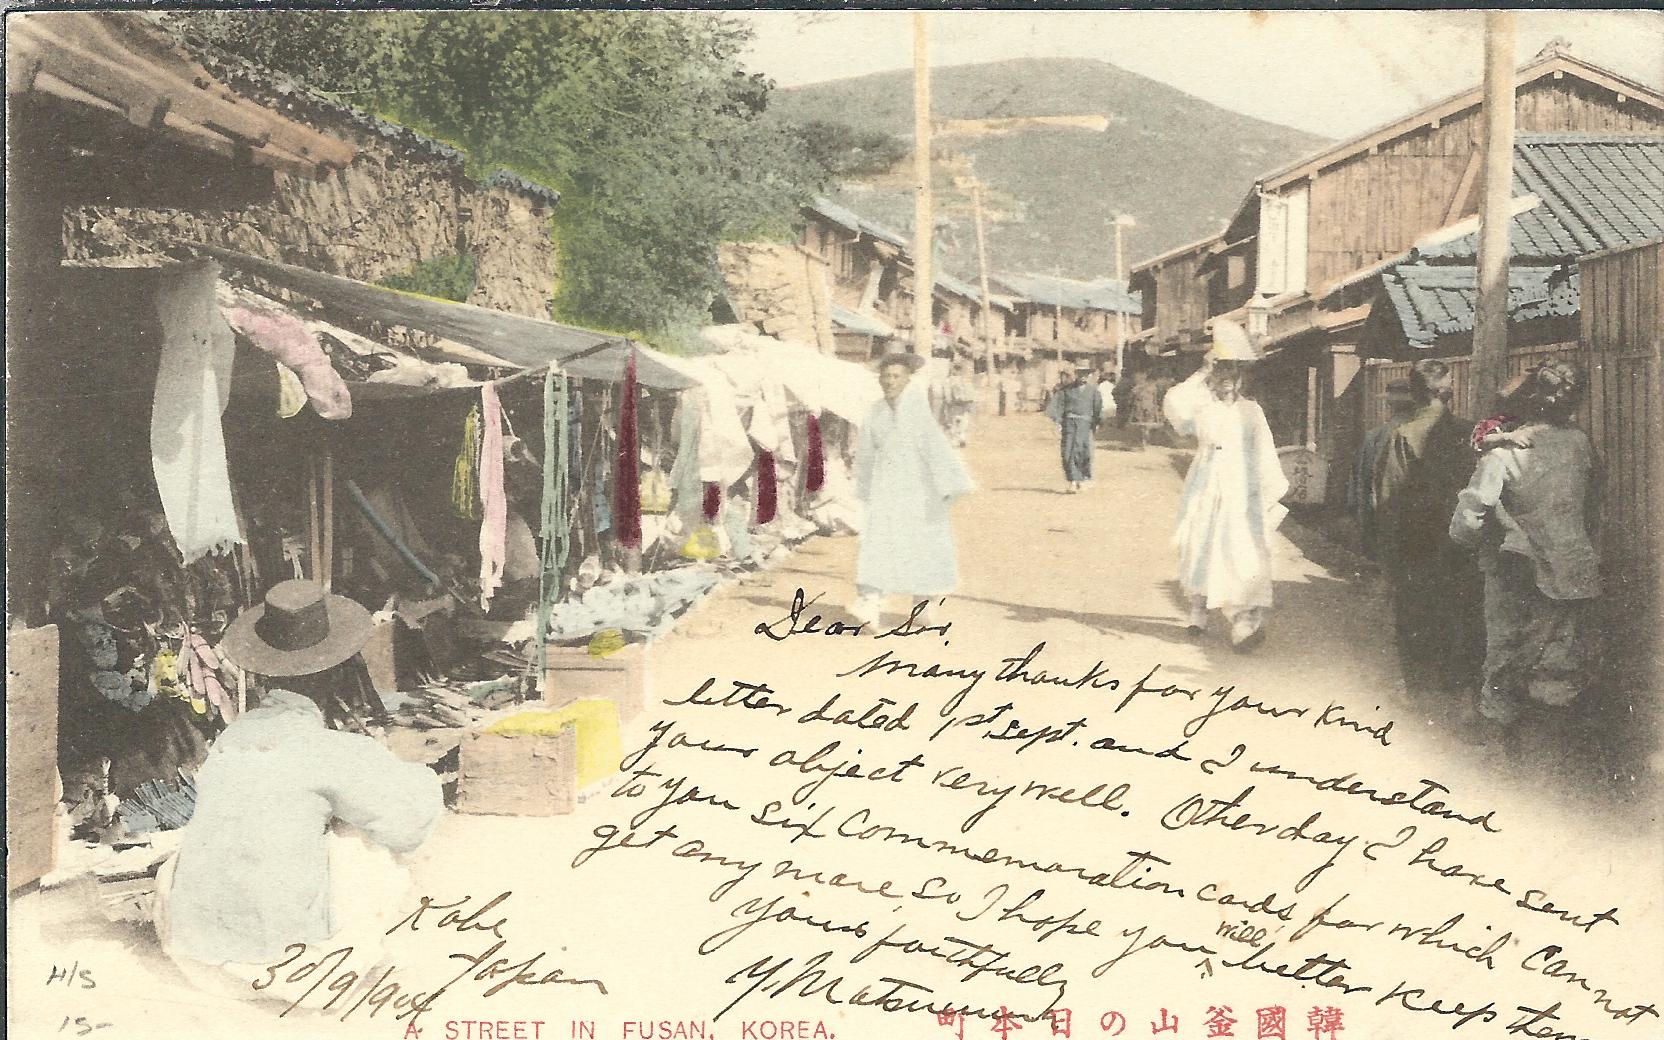 Dear Sir,
Many thanks for your kind
letter dated 1st, Sept. and I understand
your object very well. Other day I have sent
to you six Commemoration cards for which Can not
get any more, so I hope you will better keep them
yours faithfully
Y. Matsumura
Kobe
Japan
30/9/1905
H/S
15-
A STREET IN FUSAN, KOREA.
町本日の山釜國韓